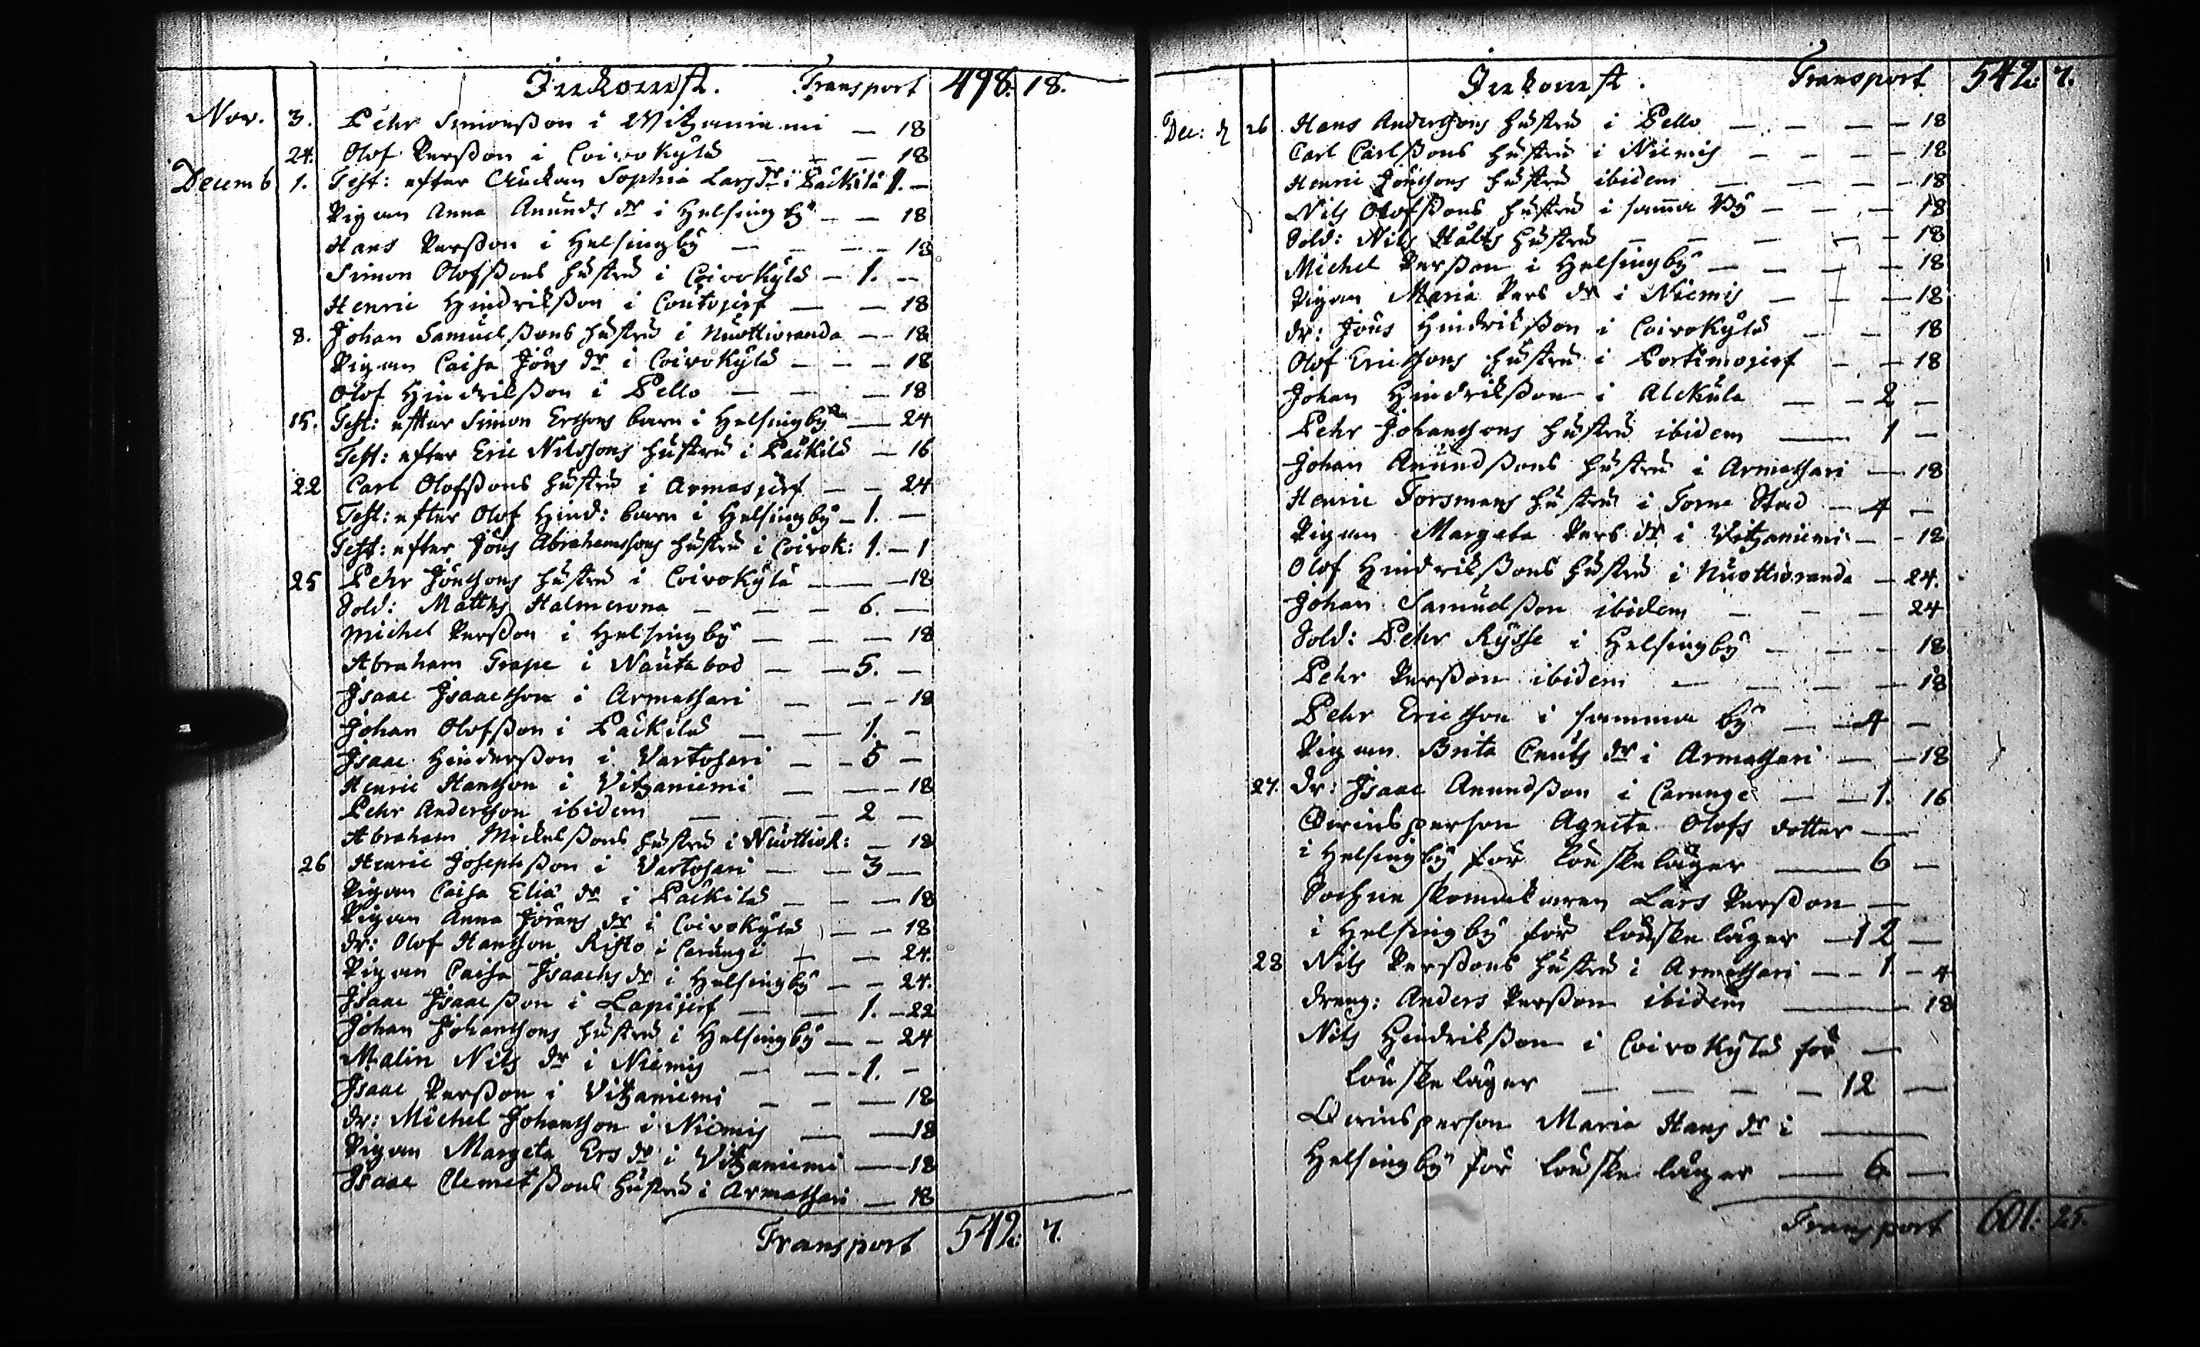 Inkomst. Transport 498: 18.
Nov. 3. Pehr Simonsson i Witzaniemi — 18
24. Olof Persson i Coivokylä — — — 18
Decemb 1. Test: efter Enckan Sophia Lars dr i Päckilä 1. —
Pigan Anna Anunds dr i Helsingby — — 18
Hans Persson i Helsingby — — — — 18
Simon Olofssons hustru i Coivokylä — 1. —
Henric Hindriksson i Contojerf — — 18
8. Johan Samuelssons hustru i Nuottioranda — — 18
Pigan Caisa Jöns dr i Coivokylä — — — 18
Olof Hindriksson i Pello — — — — 18
15. Test: efter Simon Ersons barn i Helsingby — 24
Test: efter Eric Nilssons hustru i Päckilä — 16
22 Carl Olofssons hustru i Armasjerf — — 24
Test: efter Olof Hind: barn i Helsingby — 1. —
Test: efter Jöns Abrahamssons hustru i Coivok: 1. — 1
25 Pehr Jönssons hustru i Coivokylä — — — 18
Sold: Matths Halmerona — — — 6. —
Michel Persson i Helsingby — — — 18
Abraham Grape i Nautabod — — 5. —
Isaac Isaacsson i Armassari — — — 18
Johan Olofsson i Päckilä — — 1. —
Isaac Hindersson i Vartosari — — 5 —
Henric Hansson i Vitzaniemi — — — 18
Pehr Andersson ibidem — — — 2 —
Abraham Mickelssons hustru i Nuottior: — 18
26 Henric Josephsson i Vartosari — — 3 —
Pigan Caisa Eliæ dr i Päckilä — — — 18
Pigan Anna Jörans dr i Coivokylä — — 18
dr: Olof Hansson Risto i Carungi — — 24.
Pigan Caisa Isaachs dr i Helsingby — — 24.
Isaac Isaacsson i Lapijerf — — 1. — 22
Johan Johanssons hustru i Helsingby — — 24
Malin Nils dr i Niemis — — — 1. —
Isaac Persson i Vitzaniemi — — — 18
dr: Michel Johansson i Niemis — — 18
Pigan Margeta Ers dr i Vitzaniemi — 18
Isaac Clemetssons hustru i Armassari — 18
Transport 542: 7.
Inkomst. Transport 542: 7.
Dec: d 26 Hans Anderssons hustru i Pello — — — — 18
Carl Carlssons hustru i Niemis — — — — 18
Henric Jönssons hustru ibidem — — — — 18
Nils Olofssons hustru i samma By — — — 18
Sold: Nils Halts hustru — — — — 18
Michel Persson i Helsingby — — — — 18
Pigan Maria Pers dr i Niemis — — — 18
dr: Jöns Hindriksson i Coivokylä — — 18
Olof Ericssons hustru i Portimojerf — — 18
Johan Hindriksson i Alckula — — 2 —
Pehr Johanssons hustru ibidem — 1 —
Johan Anundssons hustru i Armassari — 18
Henric Forsmans hustru i Torne Stad — 4 —
Pigan Margeta Pers dr i Vitzaniemi — — 18
Olof Hindrikssons hustru i Nuottioranda — 24.
Johan Samuelsson ibidem — — — 24
Sold: Pehr Rysse i Helsingby — — — 18
Pehr Persson ibidem — — — — 18
Pehr Ericsson i samma by — — 4 —
Pigan Brita Cnuts dr i Armassari — — 18
27. dr: Isaac Anundsson i Carunge — — 1. 16
Qvinsperson Agneta Olofs dotter —
i Helsingby för löuskeläger — 6 —
Sochneskomakaren Lars Persson —
i Helsingby för löuskeläger — 12 —
28 Nils Perssons hustru i Armassari — — 1. — 4
dreng: Anders Persson ibidem — 18
Nils Hindriksson i Coivokylä för —
löuskeläger — — — — — 12 —
Qvinsperson Maria Hans dr i —
Helsingby för löuskeläger — 6 —
Transport 601: 25.